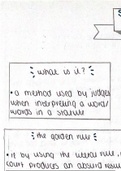 what is it?
• a method used by judges
when interpreting a word/
words in a statute
the golden rule
• if by using the literal rule,
court produces an absurd result